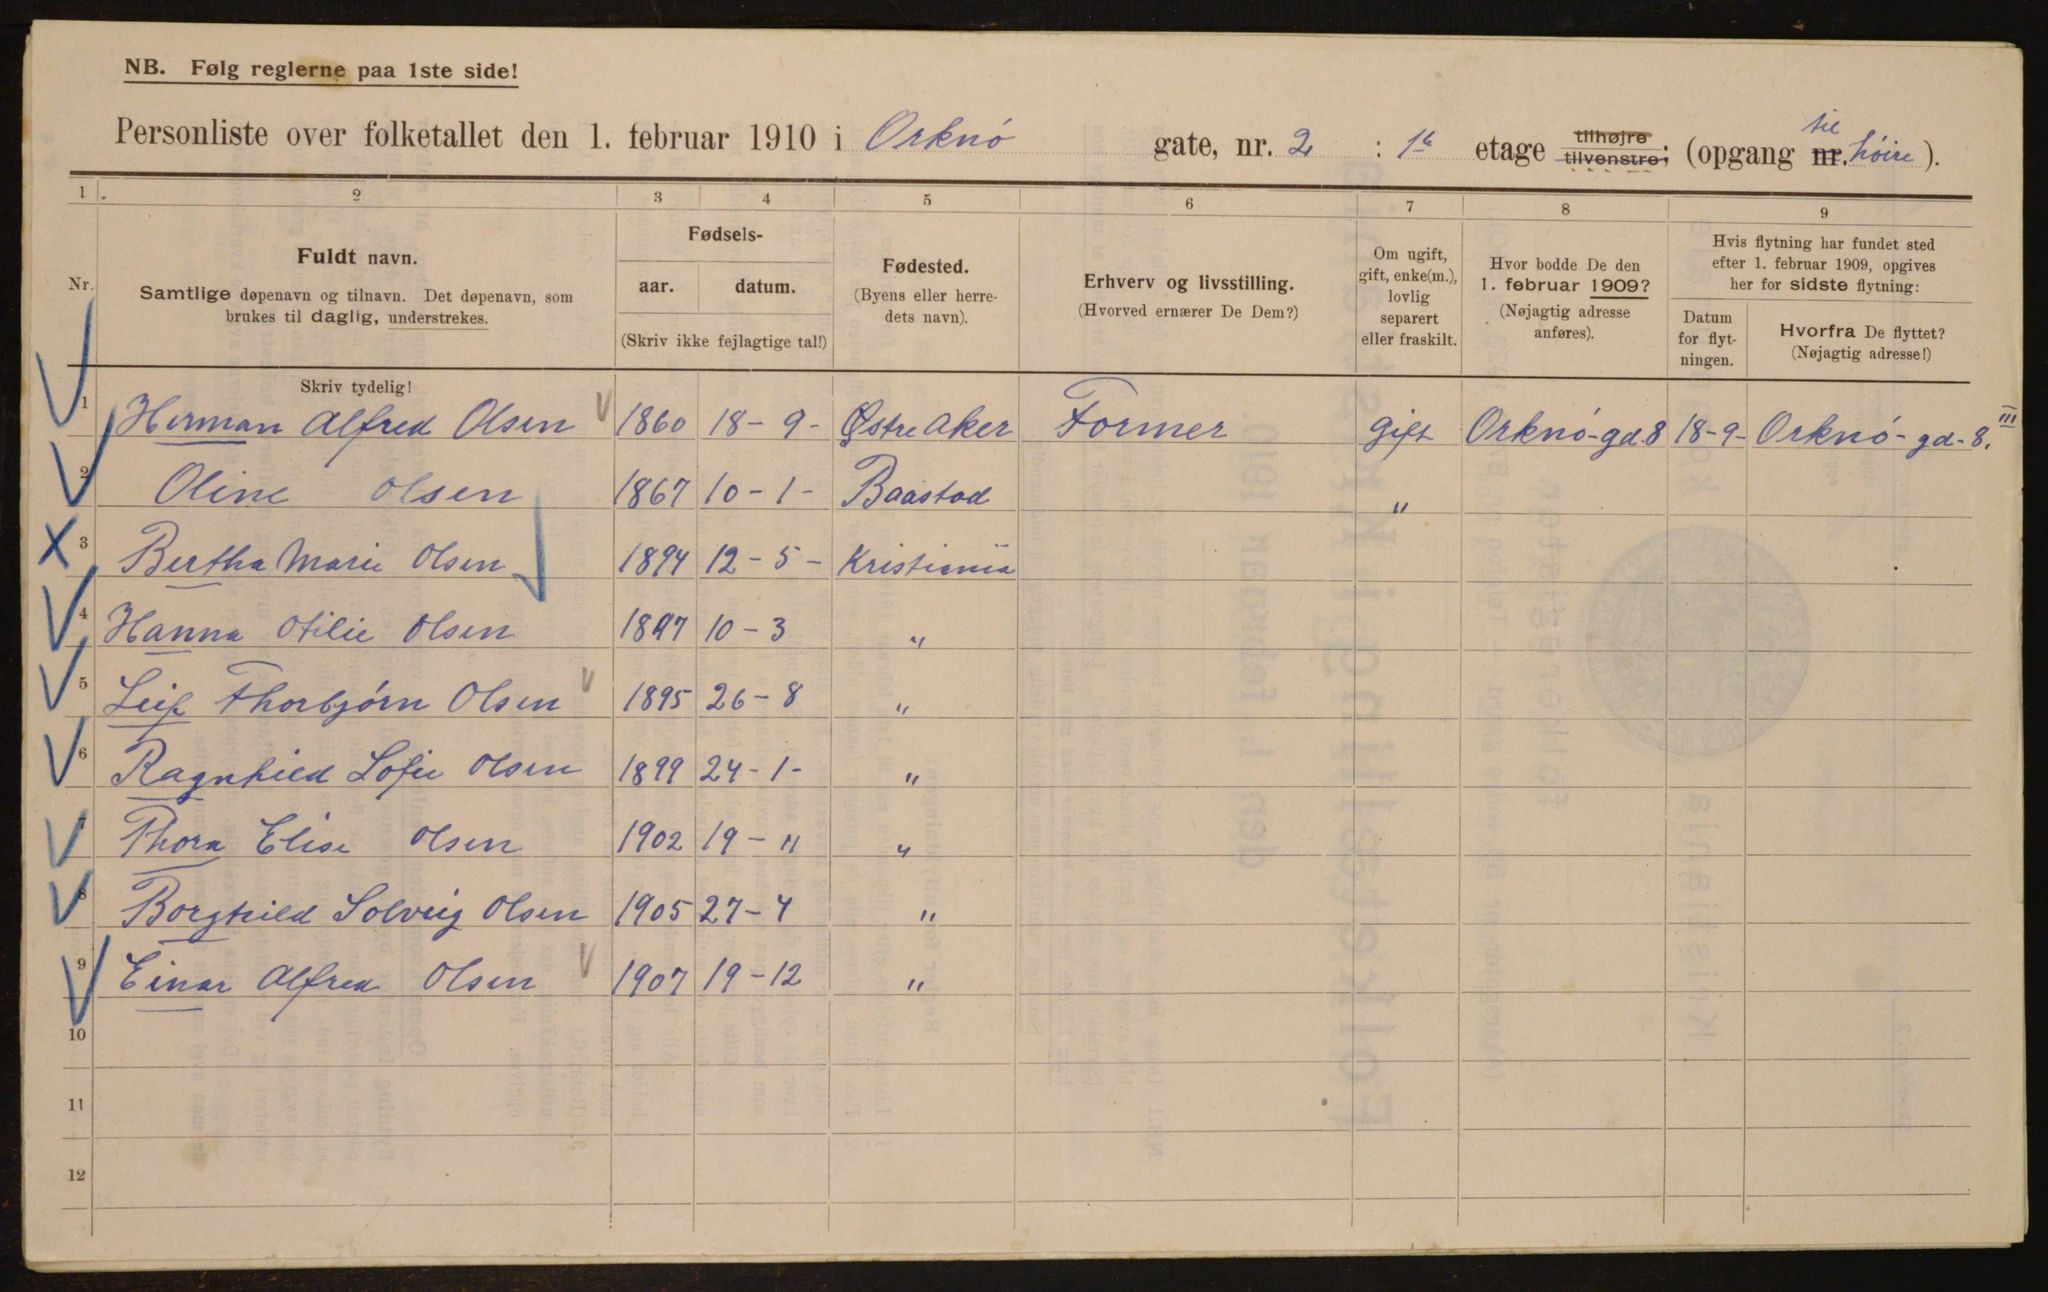 NB. Følg reglerne paa 1ste side!
til
Personliste over folketallet den 1. februar 1910 i Orknø gate, nr. 2 : 1ste etage tilhøjre tilvenstre; (opgang nr. høire).
1 2 3 4 5 6 7 8 9
Nr.
Fuldt navn.
Samtlige døpenavn og tilnavn. Det døpenavn, som
brukes til daglig, understrekes.
Fødsels-
aar. datum.
(Skriv ikke fejlagtige tal!)
Fødested.
(Byens eller herre-
dets navn).
Erhverv og livsstilling.
(Hvorved ernærer De Dem?)
Om ugift,
gift, enke(m.),
lovlig
separert
eller fraskilt.
Hvor bodde De den
1. februar 1909?
(Nøjagtig adresse
anføres).
Hvis flytning har fundet sted
efter 1. februar 1909, opgives
her for sidste flytning:
Datum
for flyt-
ningen.
Hvorfra De flyttet?
(Nøjagtig adresse!)
Skriv tydelig!
1 Herman Alfred Olsen 1860 18-9- Østre Aker Former gift Orknø-gd. 8 18-9- Orknø-gd-8. III
2 Oline Olsen 1867 10-1- Baastad "
3 Bertha Marie Olsen 1894 12-5- Kristiania
4 Hanna Otilie Olsen 1897 10-3 "
5 Leif Thorbjørn Olsen 1895 26-8 "
6 Ragnhild Sofie Olsen 1899 24-1- "
7 Thora Elise Olsen 1902 19-11 "
8 Borghild Solveig Olsen 1905 27-4 "
9 Einar Alfred Olsen 1907 19-12 "
10
11
12